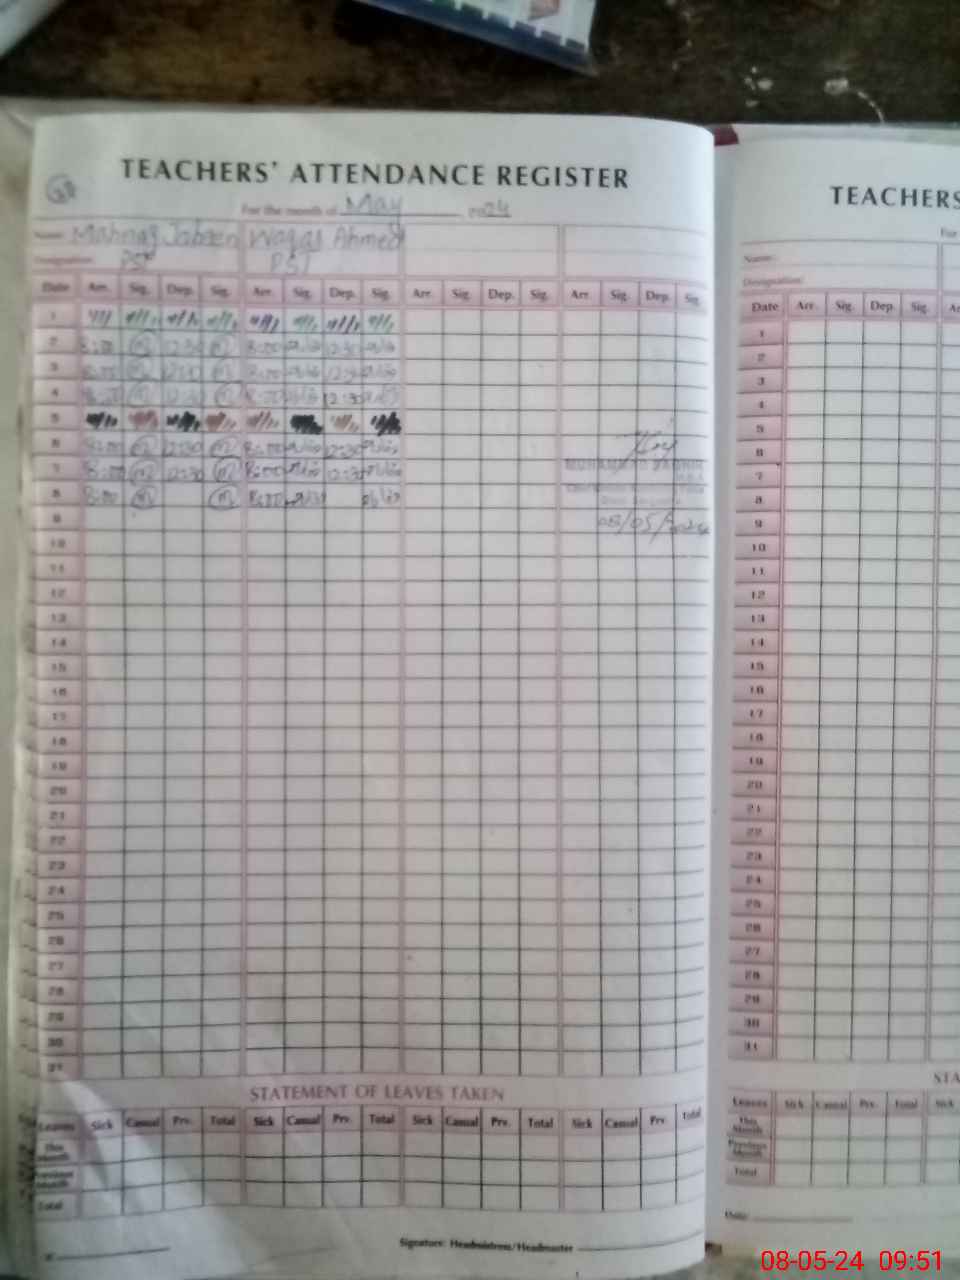 TEACHERS' ATTENDANCE REGISTER
For the month of May 2024
Name: Mahnaz Jabeen Waqas Ahmed
Designation: PST PST
Date Arr. Sig. Dep. Sig. Arr. Sig. Dep. Sig. Arr. Sig. Dep. Sig. Arr. Sig. Dep. Sig.
1
2 8:00 12:30 8:00 12:30
3 8:00 12:30 8:00 12:30
4 8:00 12:30 8:00 12:30
5
6 8:00 12:30 8:00 12:30
7 8:00 12:30 8:00 12:30
8 8:00 8:00
08/05/2024
9
10
11
12
13
14
15
16
17
18
19
20
21
22
23
24
25
26
27
28
29
30
31
STATEMENT OF LEAVES TAKEN
Leaves Sick Casual Prv. Total Sick Casual Prv. Total Sick Casual Prv. Total Sick Casual Prv. Total
This Month
Previous Month
Total
Signature: Headmistress/Headmaster
TEACHERS
For
Name:
Designation:
Date Arr. Sig. Dep. Sig. Ar
1
2
3
4
5
6
7
8
9
10
11
12
13
14
15
16
17
18
19
20
21
22
23
24
25
26
27
28
29
30
31
STA
Leaves Sick Casual Prv. Total Sick
This Month
Previous Month
Total
Date
08-05-24 09:51